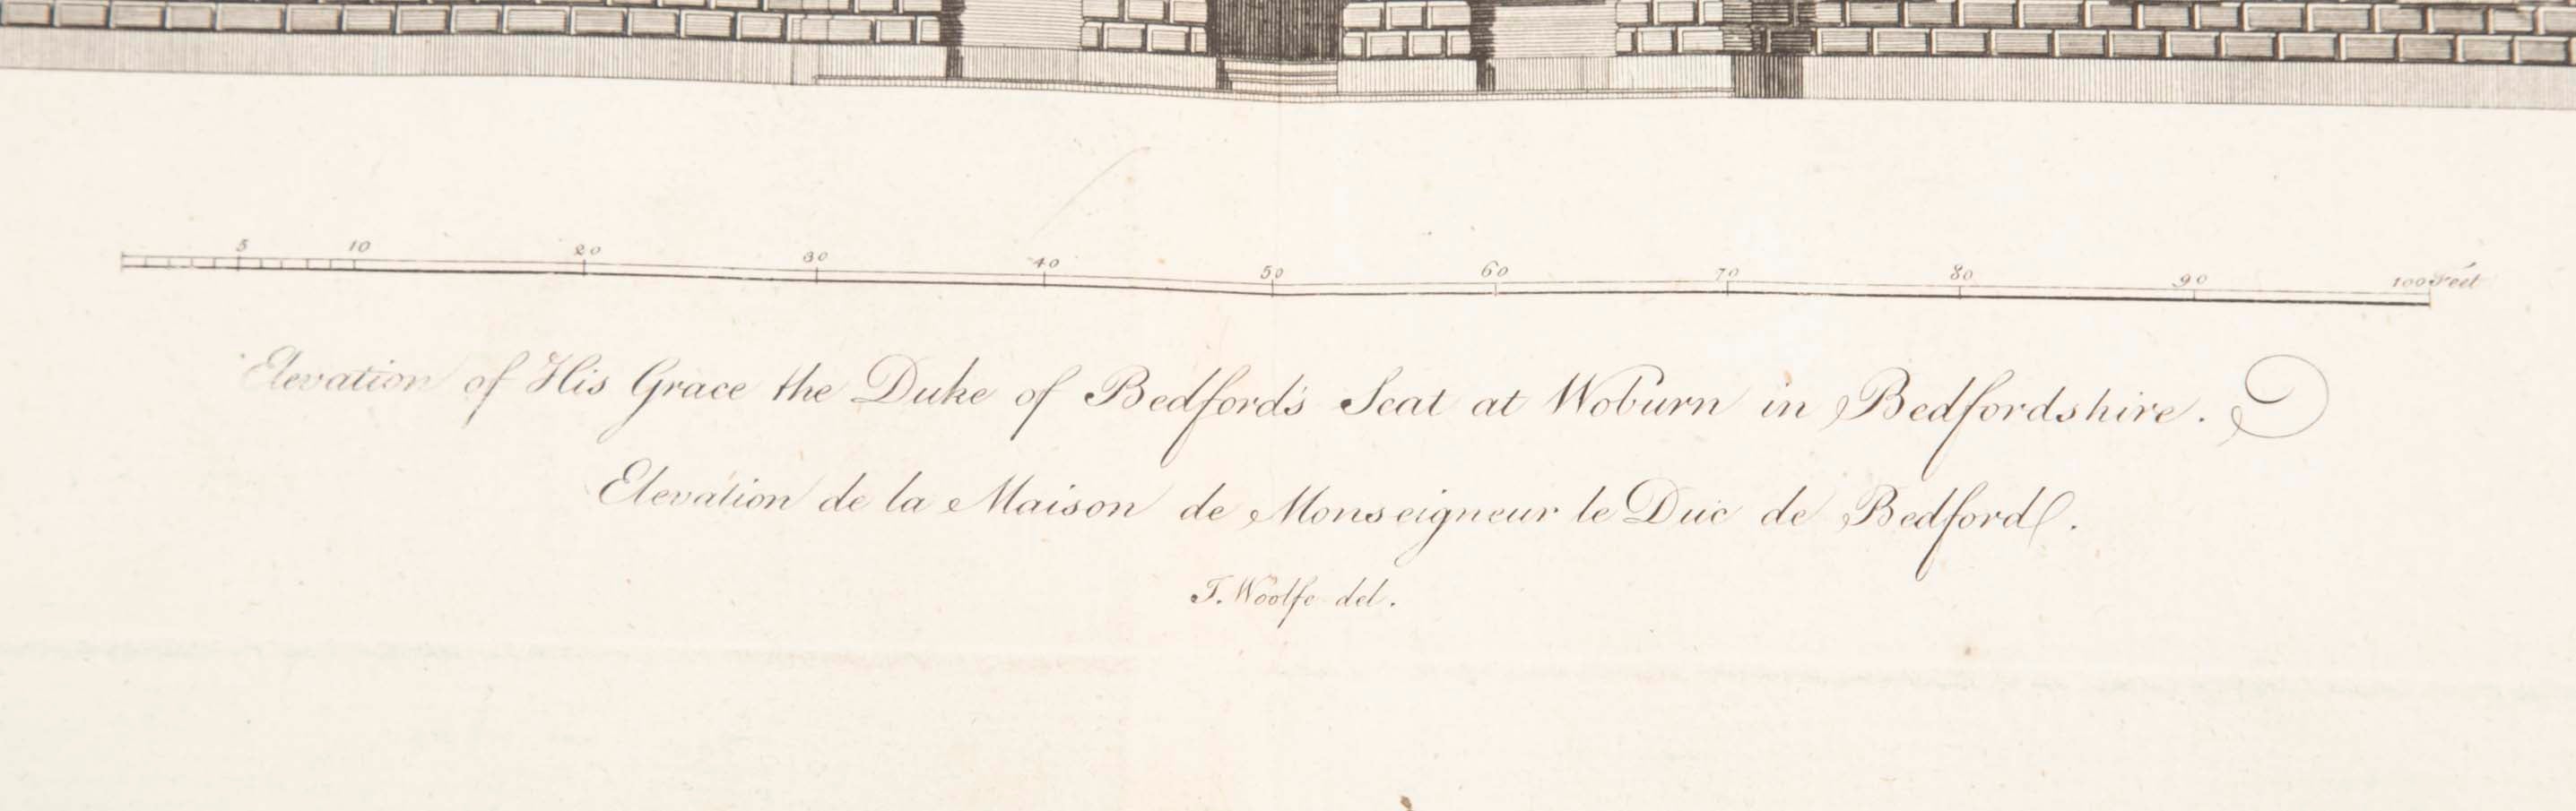 5 10 20 30 40 50 60 70 80 90 100 Feet
Elevation of His Grace the Duke of Bedford's Seat at Woburn in Bedfordshire.
Elevation de la Maison de Monseigneur le Duc de Bedford.
J. Woolfe del.